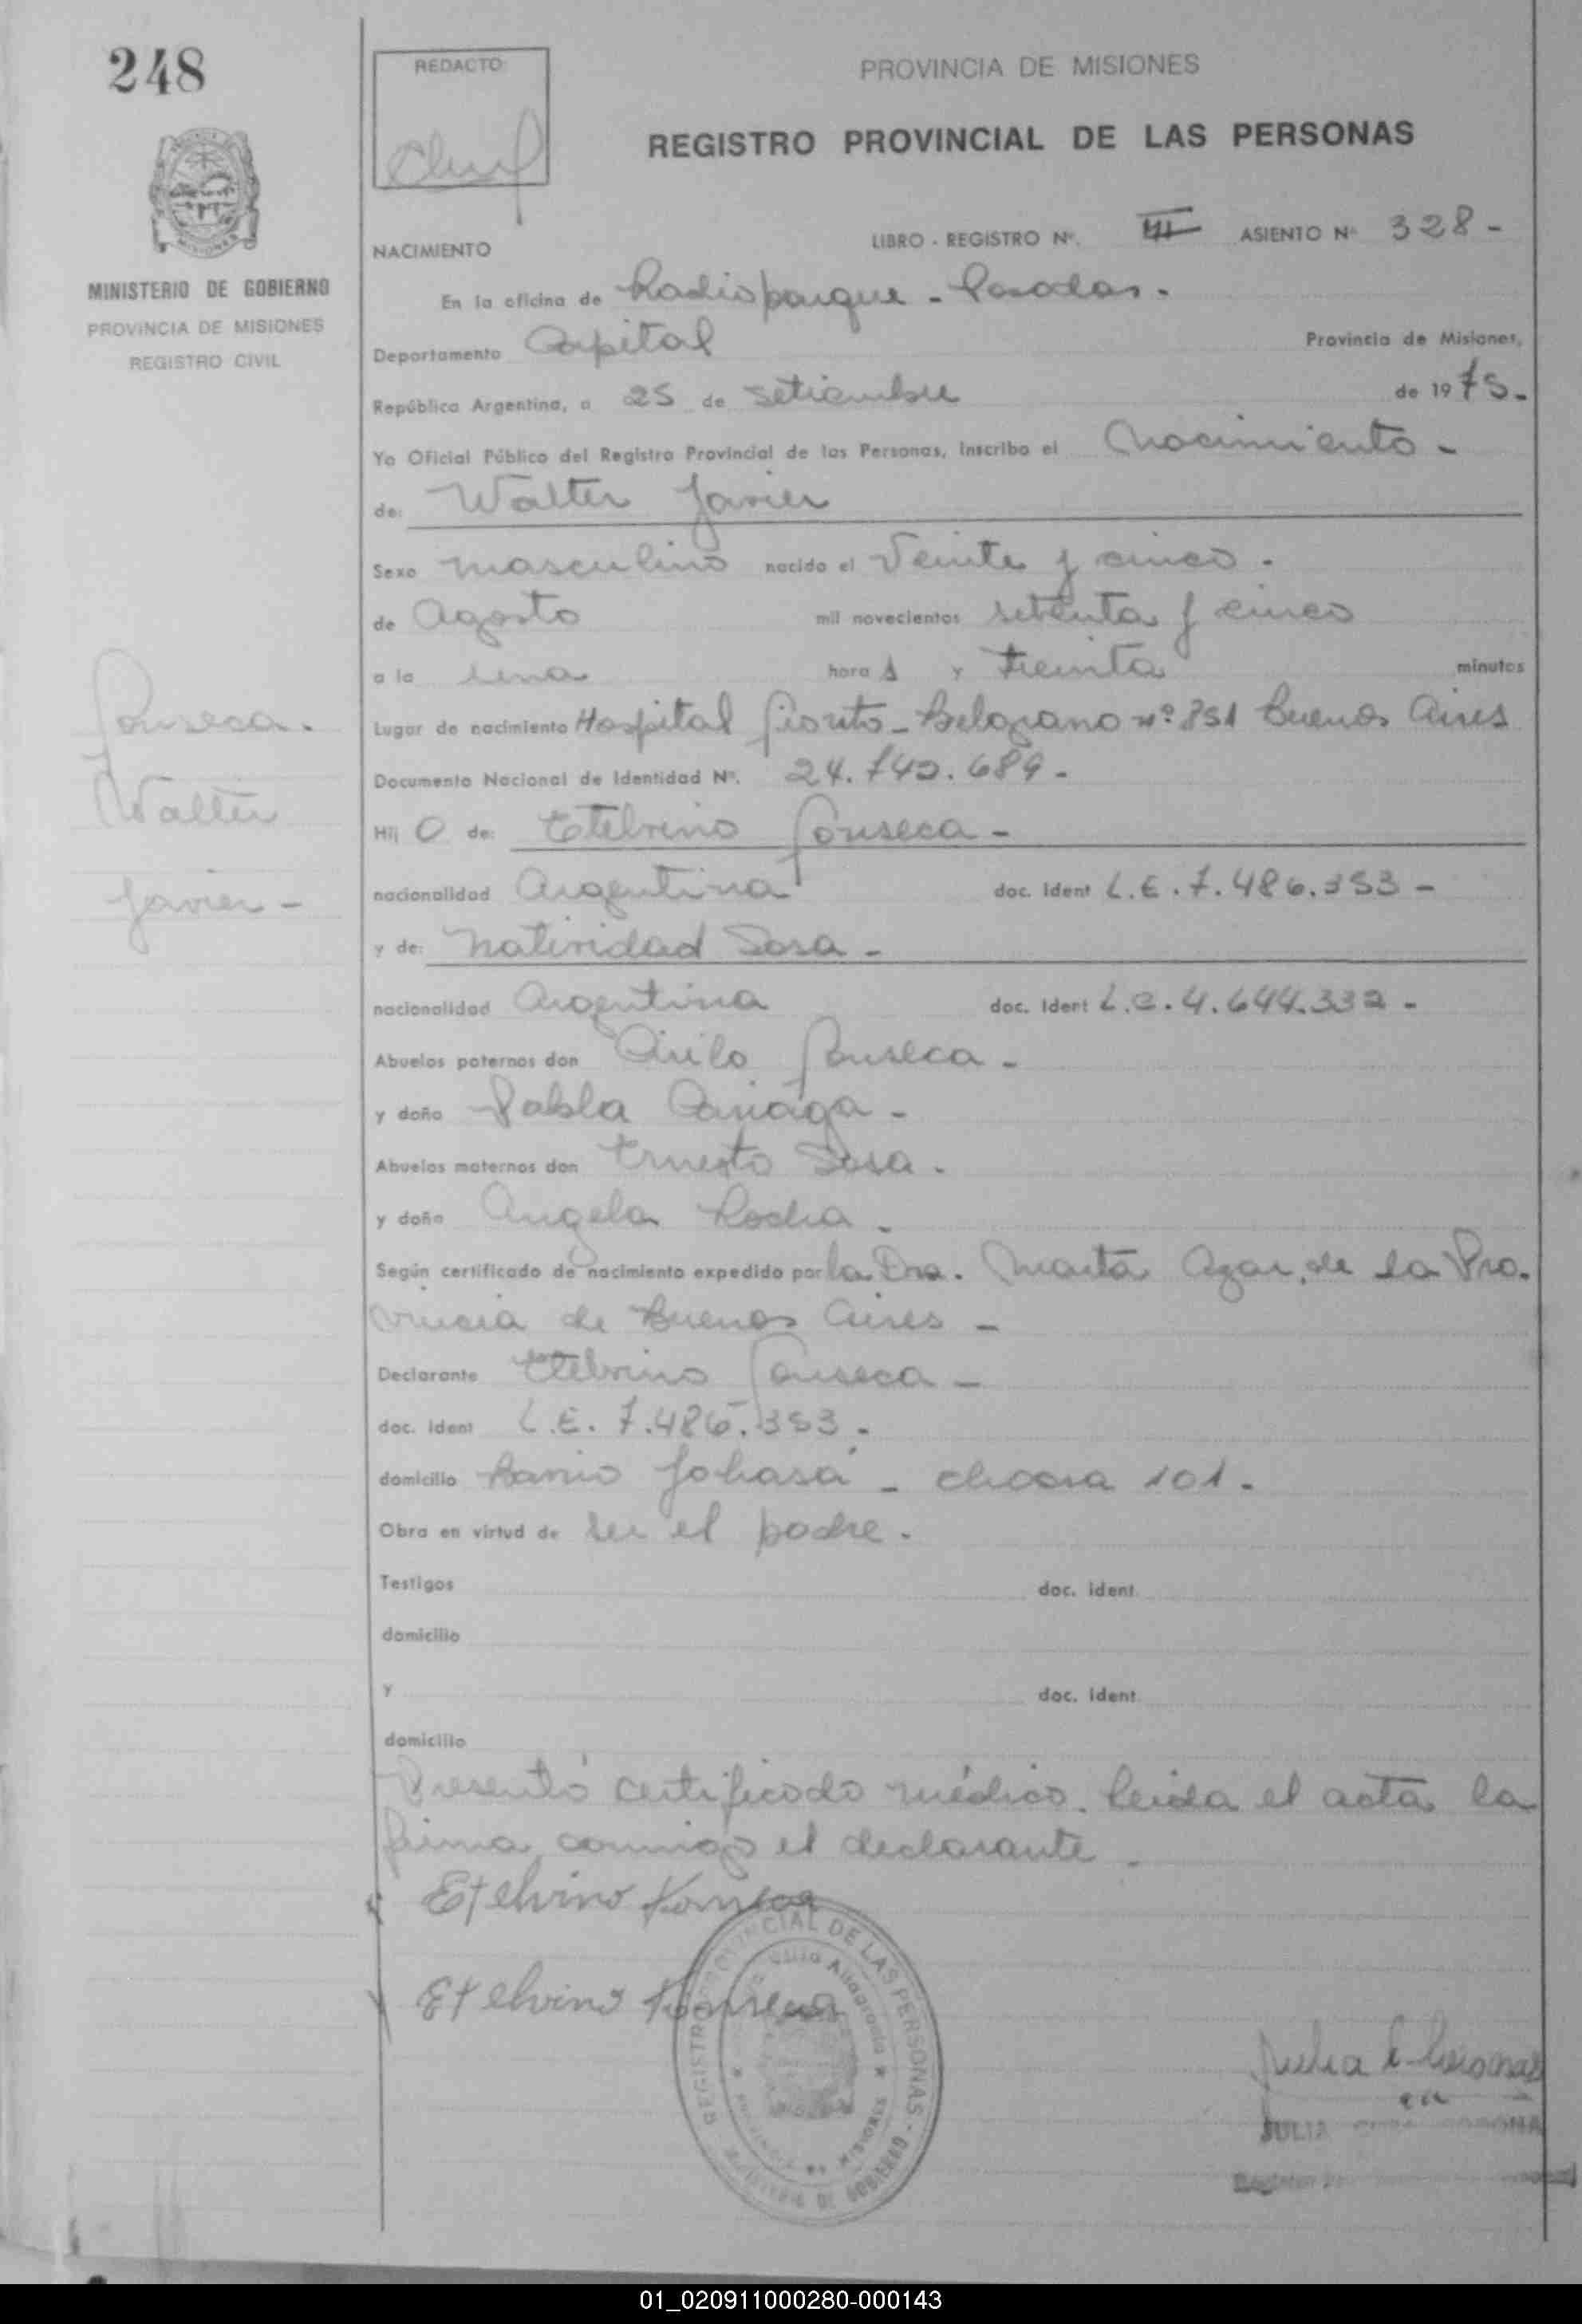 248
REDACTO:
PROVINCIA DE MISIONES
REGISTRO PROVINCIAL DE LAS PERSONAS
MINISTERIO DE GOBIERNO
PROVINCIA DE MISIONES
REGISTRO CIVIL
NACIMIENTO
LIBRO - REGISTRO Nº. III ASIENTO Nº 328 -
En la oficina de Radioparque - Posadas -
Departamento Capital Provincia de Misiones,
República Argentina, a 25 de setiembre de 1975.
Yo Oficial Público del Registro Provincial de las Personas, inscribo el Nacimiento -
de: Walter Javier
Sexo masculino nacido el Veinte y cinco -
de Agosto mil novecientos setenta y cinco
a la una hora 1 y treinta minutos
Lugar de nacimiento Hospital Fiorito - Belgrano nº 851 Buenos Aires
Documento Nacional de Identidad Nº. 24.742.689 -
Hij o de: Etelvino Fonseca -
nacionalidad Argentina doc. ident L.E. 7.486.353 -
y de: Natividad Sosa -
nacionalidad Argentina doc. ident L.C. 4.644.332 -
Abuelos paternos don Cirilo Fonseca -
y doña Pabla Cariaga -
Abuelos maternos don Ernesto Sosa -
y doña Angela Rocha -
Según certificado de nacimiento expedido por la Dra. Marta Azar, de la Pro-
vincia de Buenos Aires -
Declarante Etelvino Fonseca -
doc. ident L.E. 7.486.353 -
domicilio Barrio Yohasá - chacra 101 -
Obra en virtud de ser el padre -
Testigos doc. ident.
domicilio
y doc. ident.
domicilio
Presentó certificado médico. Leida el acta la
firma conmigo el declarante -
Etelvino Fonseca
Etelvino Fonseca
Fonseca -
Walter
Javier -
REGISTRO PROVINCIAL DE LAS PERSONAS - MINISTERIO DE GOBIERNO
JULIA
01_020911000280-000143